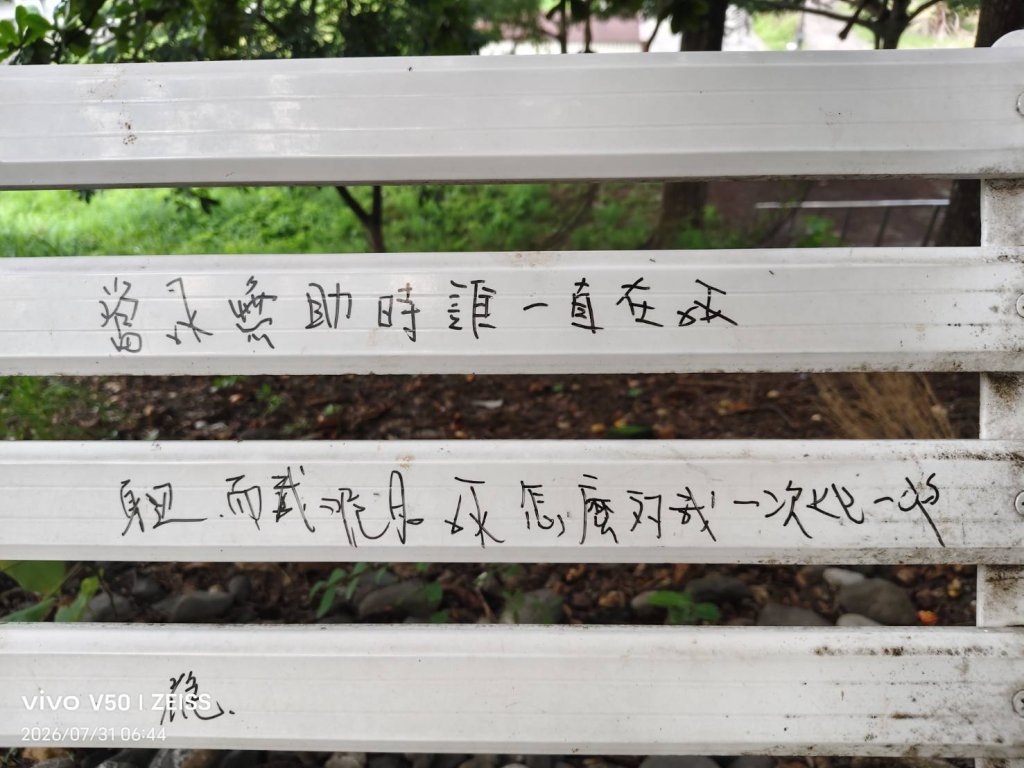 當你無助時誰一直在你
身邊.而我難過 你怎麼對我一次比一次
狠.
vivo V50 | ZEISS
2026/07/31 06:44